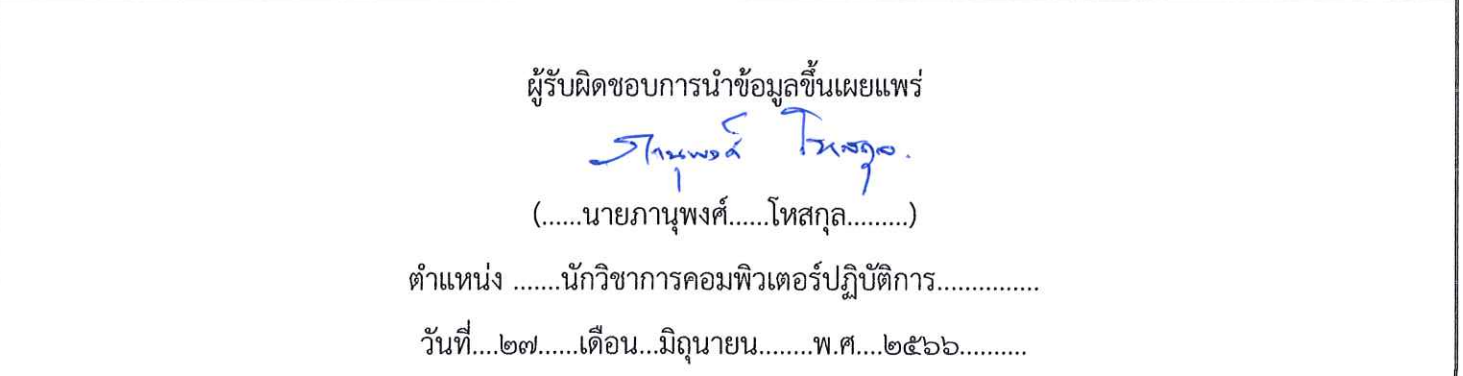 ผู้รับผิดชอบการนำข้อมูลขึ้นเผยแพร่
ภานุพงศ์ โหสกุล.
(......นายภานุพงศ์......โหสกุล.........)
ตำแหน่ง .......นักวิชาการคอมพิวเตอร์ปฏิบัติการ...............
วันที่....๒๗......เดือน...มิถุนายน........พ.ศ....๒๕๖๖..........